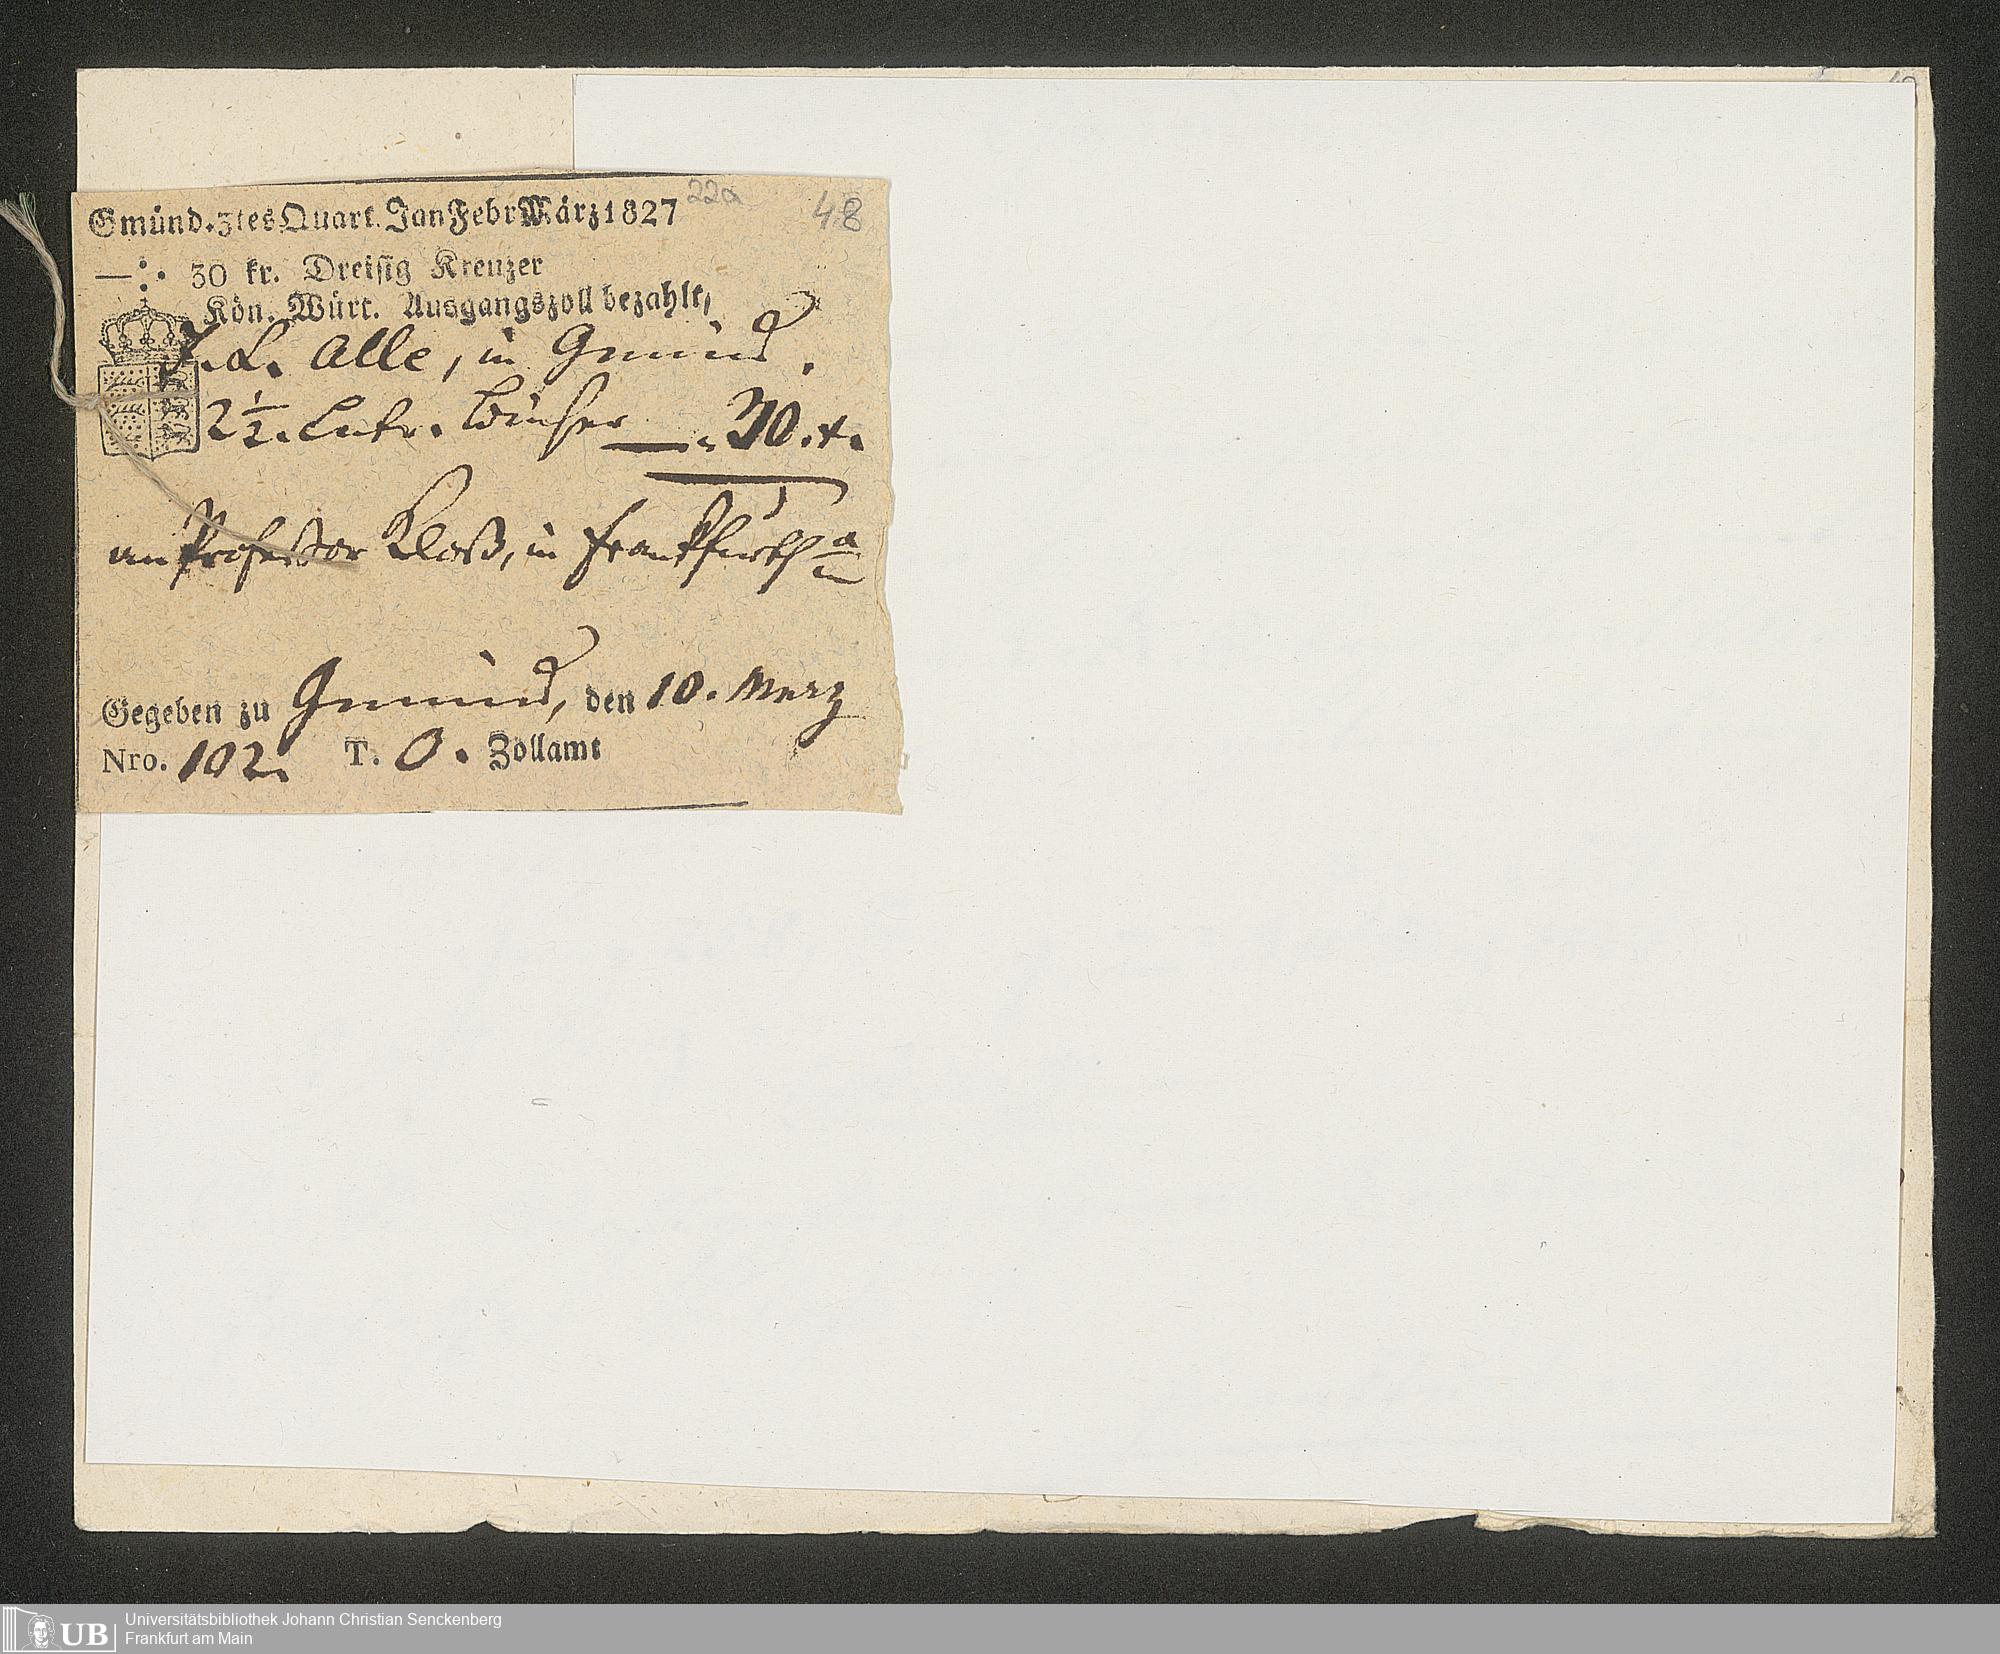 22a
48
Gmünd. 3tes Quart. Jan Febr März 1827
—:. 30 kr. Dreisig Kreuzer
Kön. Würt. Ausgangszoll bezahlt,
L. Alle, in Gmünd.
2 1/2. Entr. Bücher — „ 30. x.
an Professor Kloß, in Frankfurth a/m
Gegeben zu Gmünd, den 10. Merz
Nro. 102. T. O. Zollamt
UB
Universitätsbibliothek Johann Christian Senckenberg
Frankfurt am Main